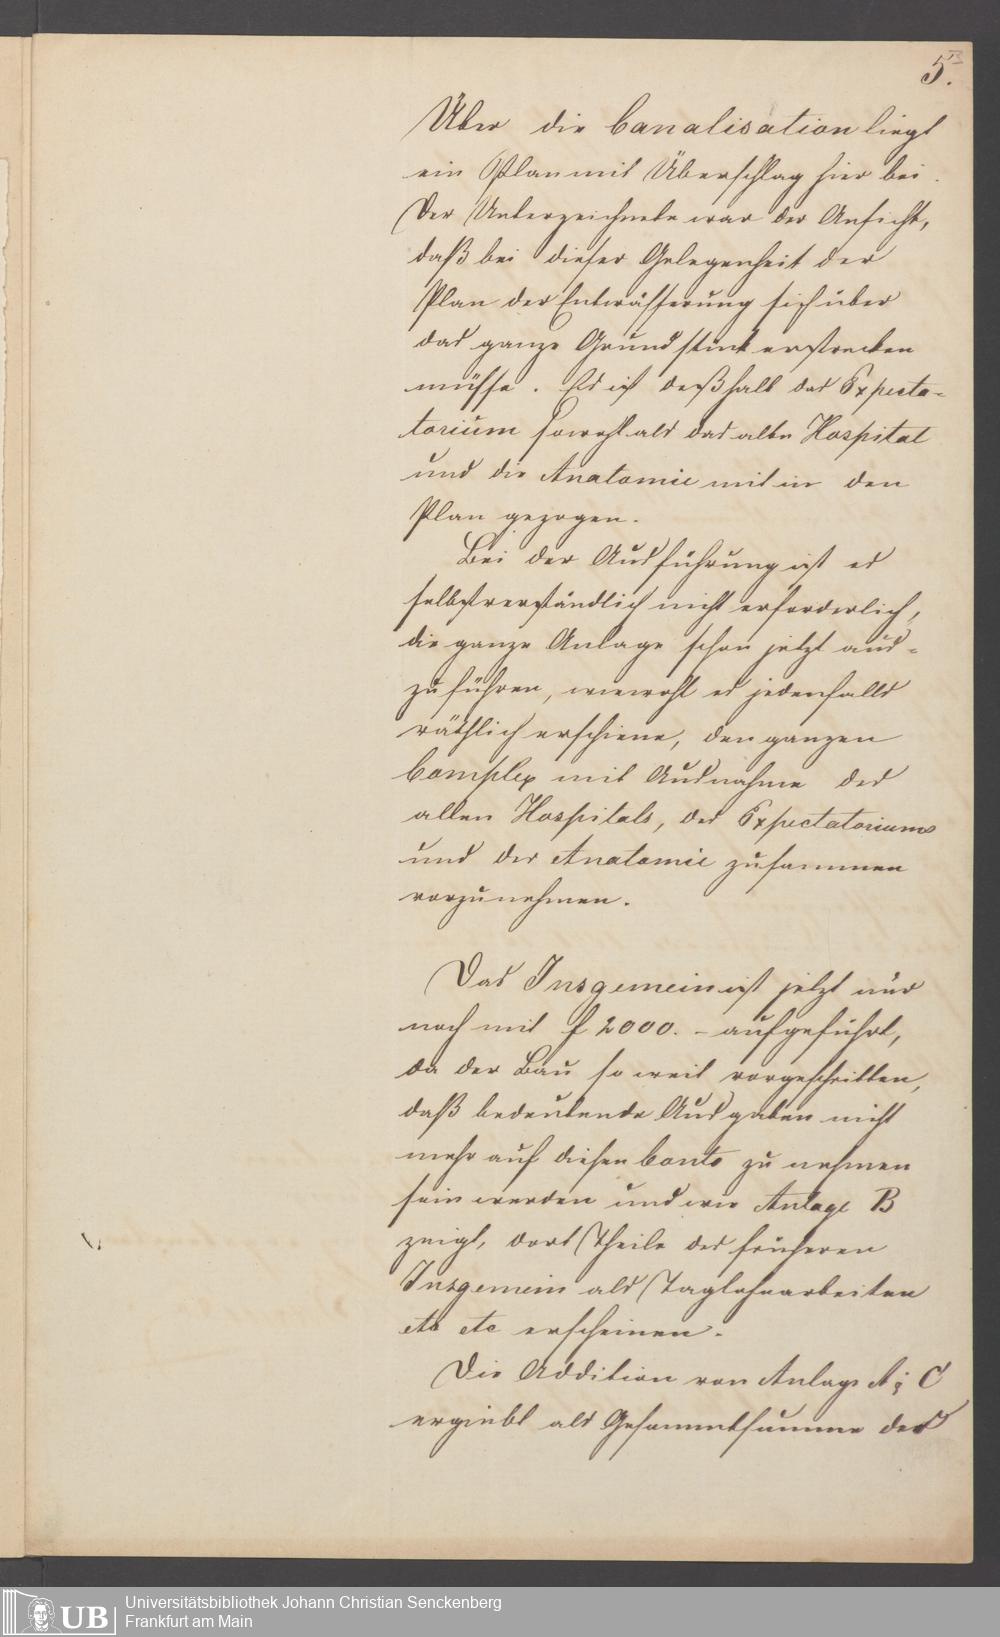 5.
Über die Canalisation liegt
ein Plan mit Überschlag hier bei.
Der Unterzeichnete war der Ansicht,
daß bei dieser Gelegenheit der
Plan der Entwässerung sich über
das ganze Grundstück erstrecken
müsse. Es ist deßhalb das Expecta-
torium sowohl als das alte Hospital
und die Anatomie mit in den
Plan gezogen.
Bei der Ausführung ist es
selbstverständlich nicht erforderlich,
die ganze Anlage schon jetzt aus-
zuführen, wiewohl es jedenfalls
räthlich erschiene, den ganzen
Complex mit Ausnahme des
alten Hospitals, des Expectatoriums
und der Anatomie zusammen
vorzunehmen.
Das Insgemein ist jetzt nur
noch mit f 2000.- aufgeführt,
da der Bau so weit vorgeschritten,
daß bedeutende Ausgaben nicht
mehr auf diesen Conto zu nehmen
sein werden und wie Anlage B
zeigt, dort Theile des früheren
Insgemein als Taglohnarbeiten
etc etc erscheinen.
Die Addition von Anlage A; C
ergiebt als Gesammtsumme des
UB
Universitätsbibliothek Johann Christian Senckenberg
Frankfurt am Main